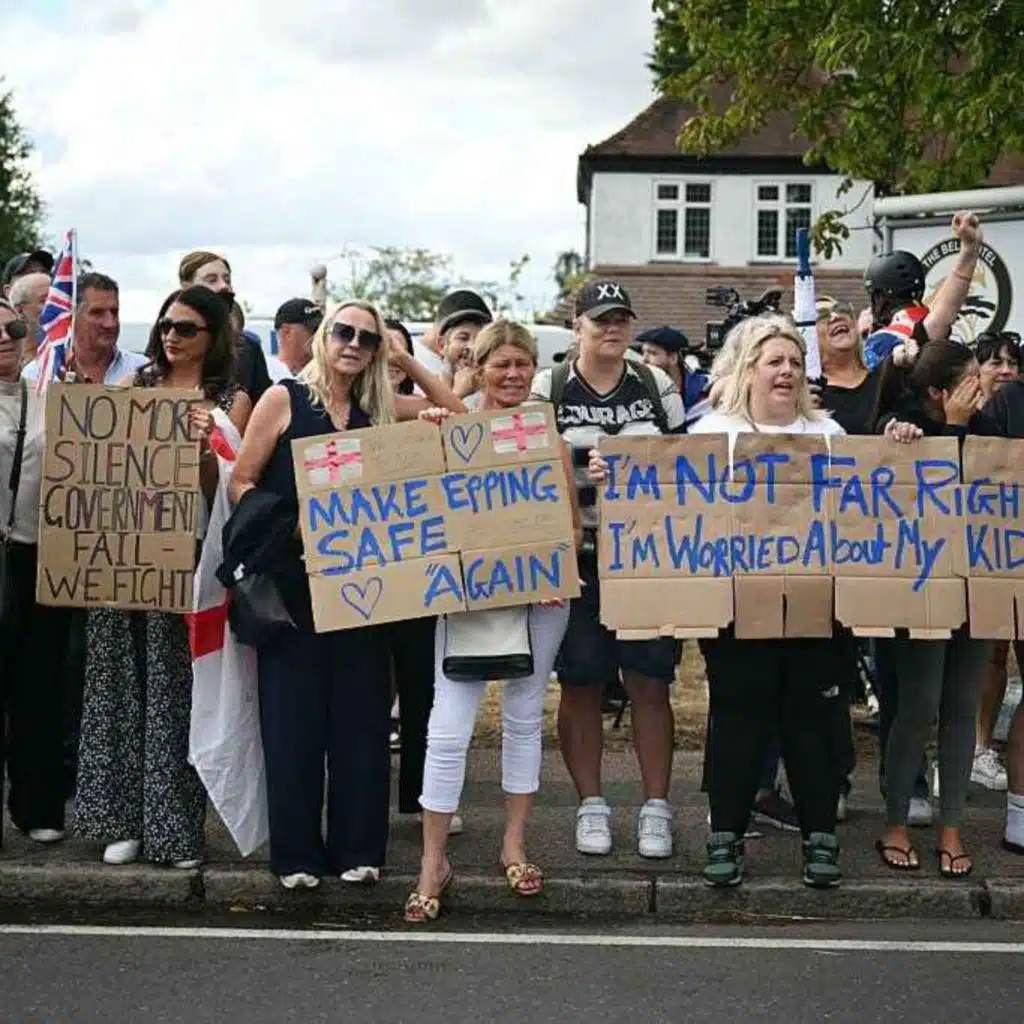 NO MORE
SILENCE-
GOVERNMENT
FAIL-
WE FIGHT
MAKE EPPING
SAFE
"AGAIN"
XX
COURAGE
I'M NOT FAR RIGH
I'M WORRIED About My KID
THE BELL
TEL